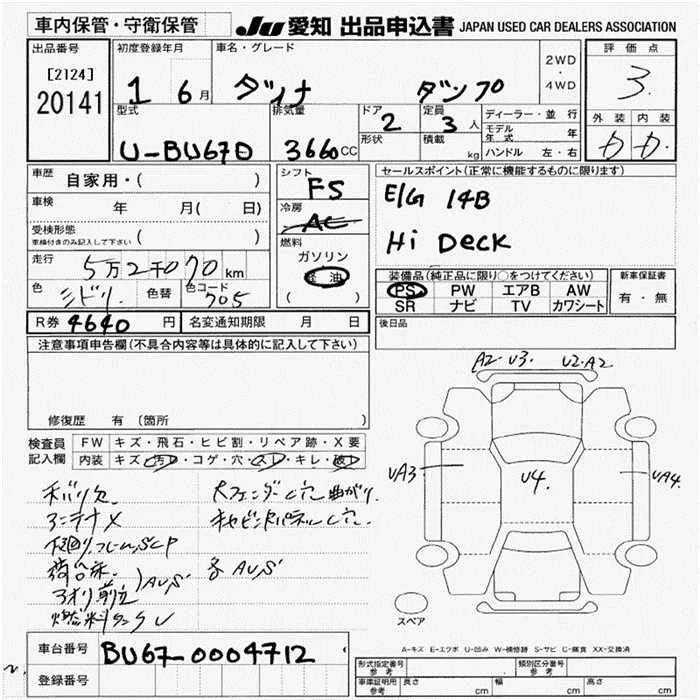 車内保管・守衛保管
JU 愛知 出品申込書 JAPAN USED CAR DEALERS ASSOCIATION
出品番号
[2124]
20141
初度登録年月
1 6月
車名・グレード
ダイナ ダンプ
2WD
・
4WD
評価点
3.
外装 内装
型式
U-BU67D
排気量
3660CC
ドア
2
形状
定員
3人
積載
kg
ディーラー・並行
モデル年式 年
ハンドル 左・右
車歴 自家用・( )
車検 年 月( 日)
受検形態
車検付きのみ記入して下さい ( )
走行 5万2千070km
色 ミドリ. 色替 色コード 705
シフト
F5
冷房
AC
燃料
ガソリン
軽油
( )
セールスポイント(正常に機能するものに限ります)
E/G 14B
Hi Deck
装備品(純正品に限り○をつけてください)
PS PW エアB AW
SR ナビ TV カワシート
新車保証書
有・無
R券 4640円 名変通知期限 月 日
後日品
注意事項申告欄(不具合内容等は具体的に記入して下さい)
修復歴 有 (箇所 )
検査員記入欄
FW キズ・飛石・ヒビ割・リペア跡・X要
内装 キズ・汚レ・コゲ・穴・スレ・キレ・破レ
A2-U3. U2-A2
UA3 U4. UA4
アンテナX
荷台床
アオリ
燃料タンクU
各 AU,S
スペア
A-キズ E-エクボ U-凹み W-補修跡 S-サビ C-腐食 XX-交換済
車台番号 BU67-0004712
登録番号
型式指定番号 参考
類別区分番号 参考
車庫証明用 参考 長さ cm 幅 cm 高さ cm